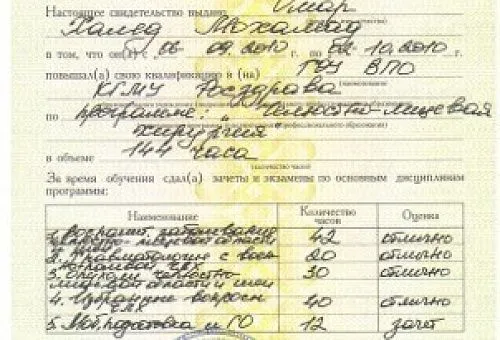 Настоящее свидетельство выдано Омар
Халед Мохамад
в том, что он(а) с „06 09.2010 г. по 02.10.2010 г.
повышал(а) свою квалификацию в (на) ГОУ ВПО
(наименование
КГМУ Росздрава
по программе: „Челюстно-лицевая
профессионального образования)
хирургия"
в объеме 144 часа
(количество часов)
За время обучения сдал(а) зачеты и экзамены по основным дисциплинам
программы:
Наименование Количество часов Оценка
1. Воспалит. заболевания
челюстно-лицевой области
и шеи 42 отлично
2. Травматология с воен-
20 отлично
3. Опухоли челюстно-
лицевой области и шеи 30 отлично
4. Избранные вопросы
40 отлично
5. Моб. подготовка и ГО 12 зачет